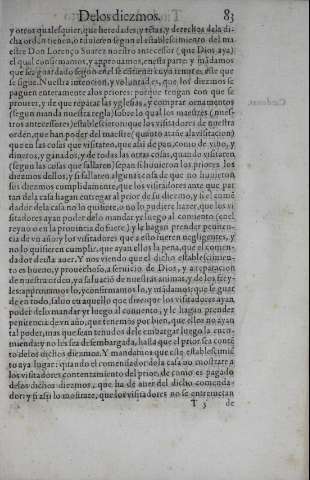 De los diezmos. 83
y otros qualesquier, que heredades, y rẽtas, y derechos de la di-
cha ordẽ tienen, o tuuieren segun el establescimiento del ma
estre Don Lorenço Suarez nuestro antecessor (que Dios aya)
el qual confirmamos, y approuamos, en esta parte y mãdamos
que sea guardado segun en el se cõtiene: cuyo tenor es, este que
se sigue. Nuestra intencion, y voluntad es, que los diezmos se
paguen enteramente a los priores: porque tengan con que se
prouter, y de que reparar las yglesias, y comprar ornamentos
(segun manda nuestra regla) sobre lo qual los maestres (nues-
tros antecessores) establescieron: que los visitadores de nuestra
orden, que han poder del maestre (quanto atañe a la visitacion)
que en las cosas que visitaren, que assi de pan, como de vino, y
dineros, y ganados, y de todas las otras cosas, quando visitaren
(segun las cosas que fallaren) sepan si huuieron los priores los
diezmos dellos, y si fallaren alguna cosa de que no huuieron
sus diezmos cumplidamente, que los visitadores ante que par
tan de la casa hagan entregar al prior de su diezmo, y si el comẽ
dador de la casa no lo quisiere, o no lo pudiere hazer, que los vi
sitadores ayan poder de lo mandar yr luego al conuento (en el
reyno o en la prouincia do fuere) y le hagan prender peniten-
cia de vn año: y los visitadores que a esto fueren negligentes, y
no lo quisieren cumplir, que ayan ellos la pena, que el comen-
dador deuia auer. Y nos viendo que el dicho establescimien-
to es bueno, y prouechoso, a seruicio de Dios, y a reparacion
de nuestra ordẽ, y a saluaciõ de nuestras animas, y de los frey-
les, approuamos lo, y confirmamos lo, y mãdamos: que se guar
de en todo, saluo en aquello que dize: que los visitadores ayan
poder de lo mandar yr luego al conuento, y le hagan prender
penitencia de vn año, que tenemos por bien, que ellos no ayan
tal poder, mas que sean tenudos de le embargar luego la enco-
mienda: y no le sea desembargada, hasta que el prior sea contẽ
to de los dichos diezmos. Y mandamos que este establescimiẽ
to aya lugar: quando el comendador de la casa no mostrare a
los visitadores contentamiento del prior, de como es pagado
de los dichos diezmos, que ha de auer del dicho comenda-
dor: y si assi lo mostrare, que los visitadores no se entremetan
T 3 de